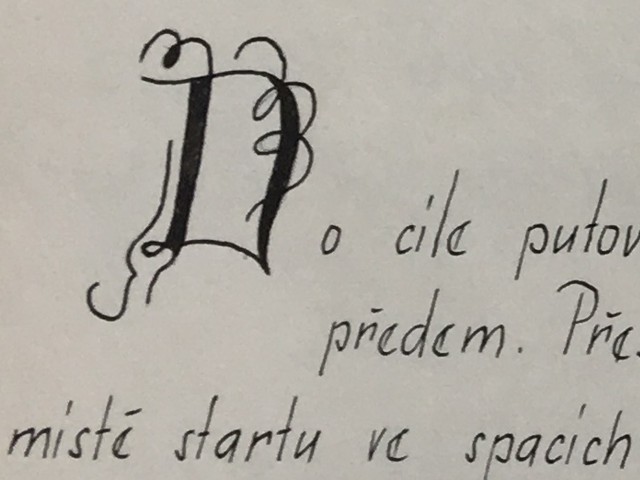 Do cíle putov
předem. Pře
místě startu ve spacích